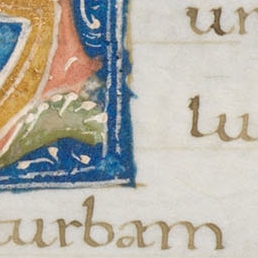 un
lu
urbam